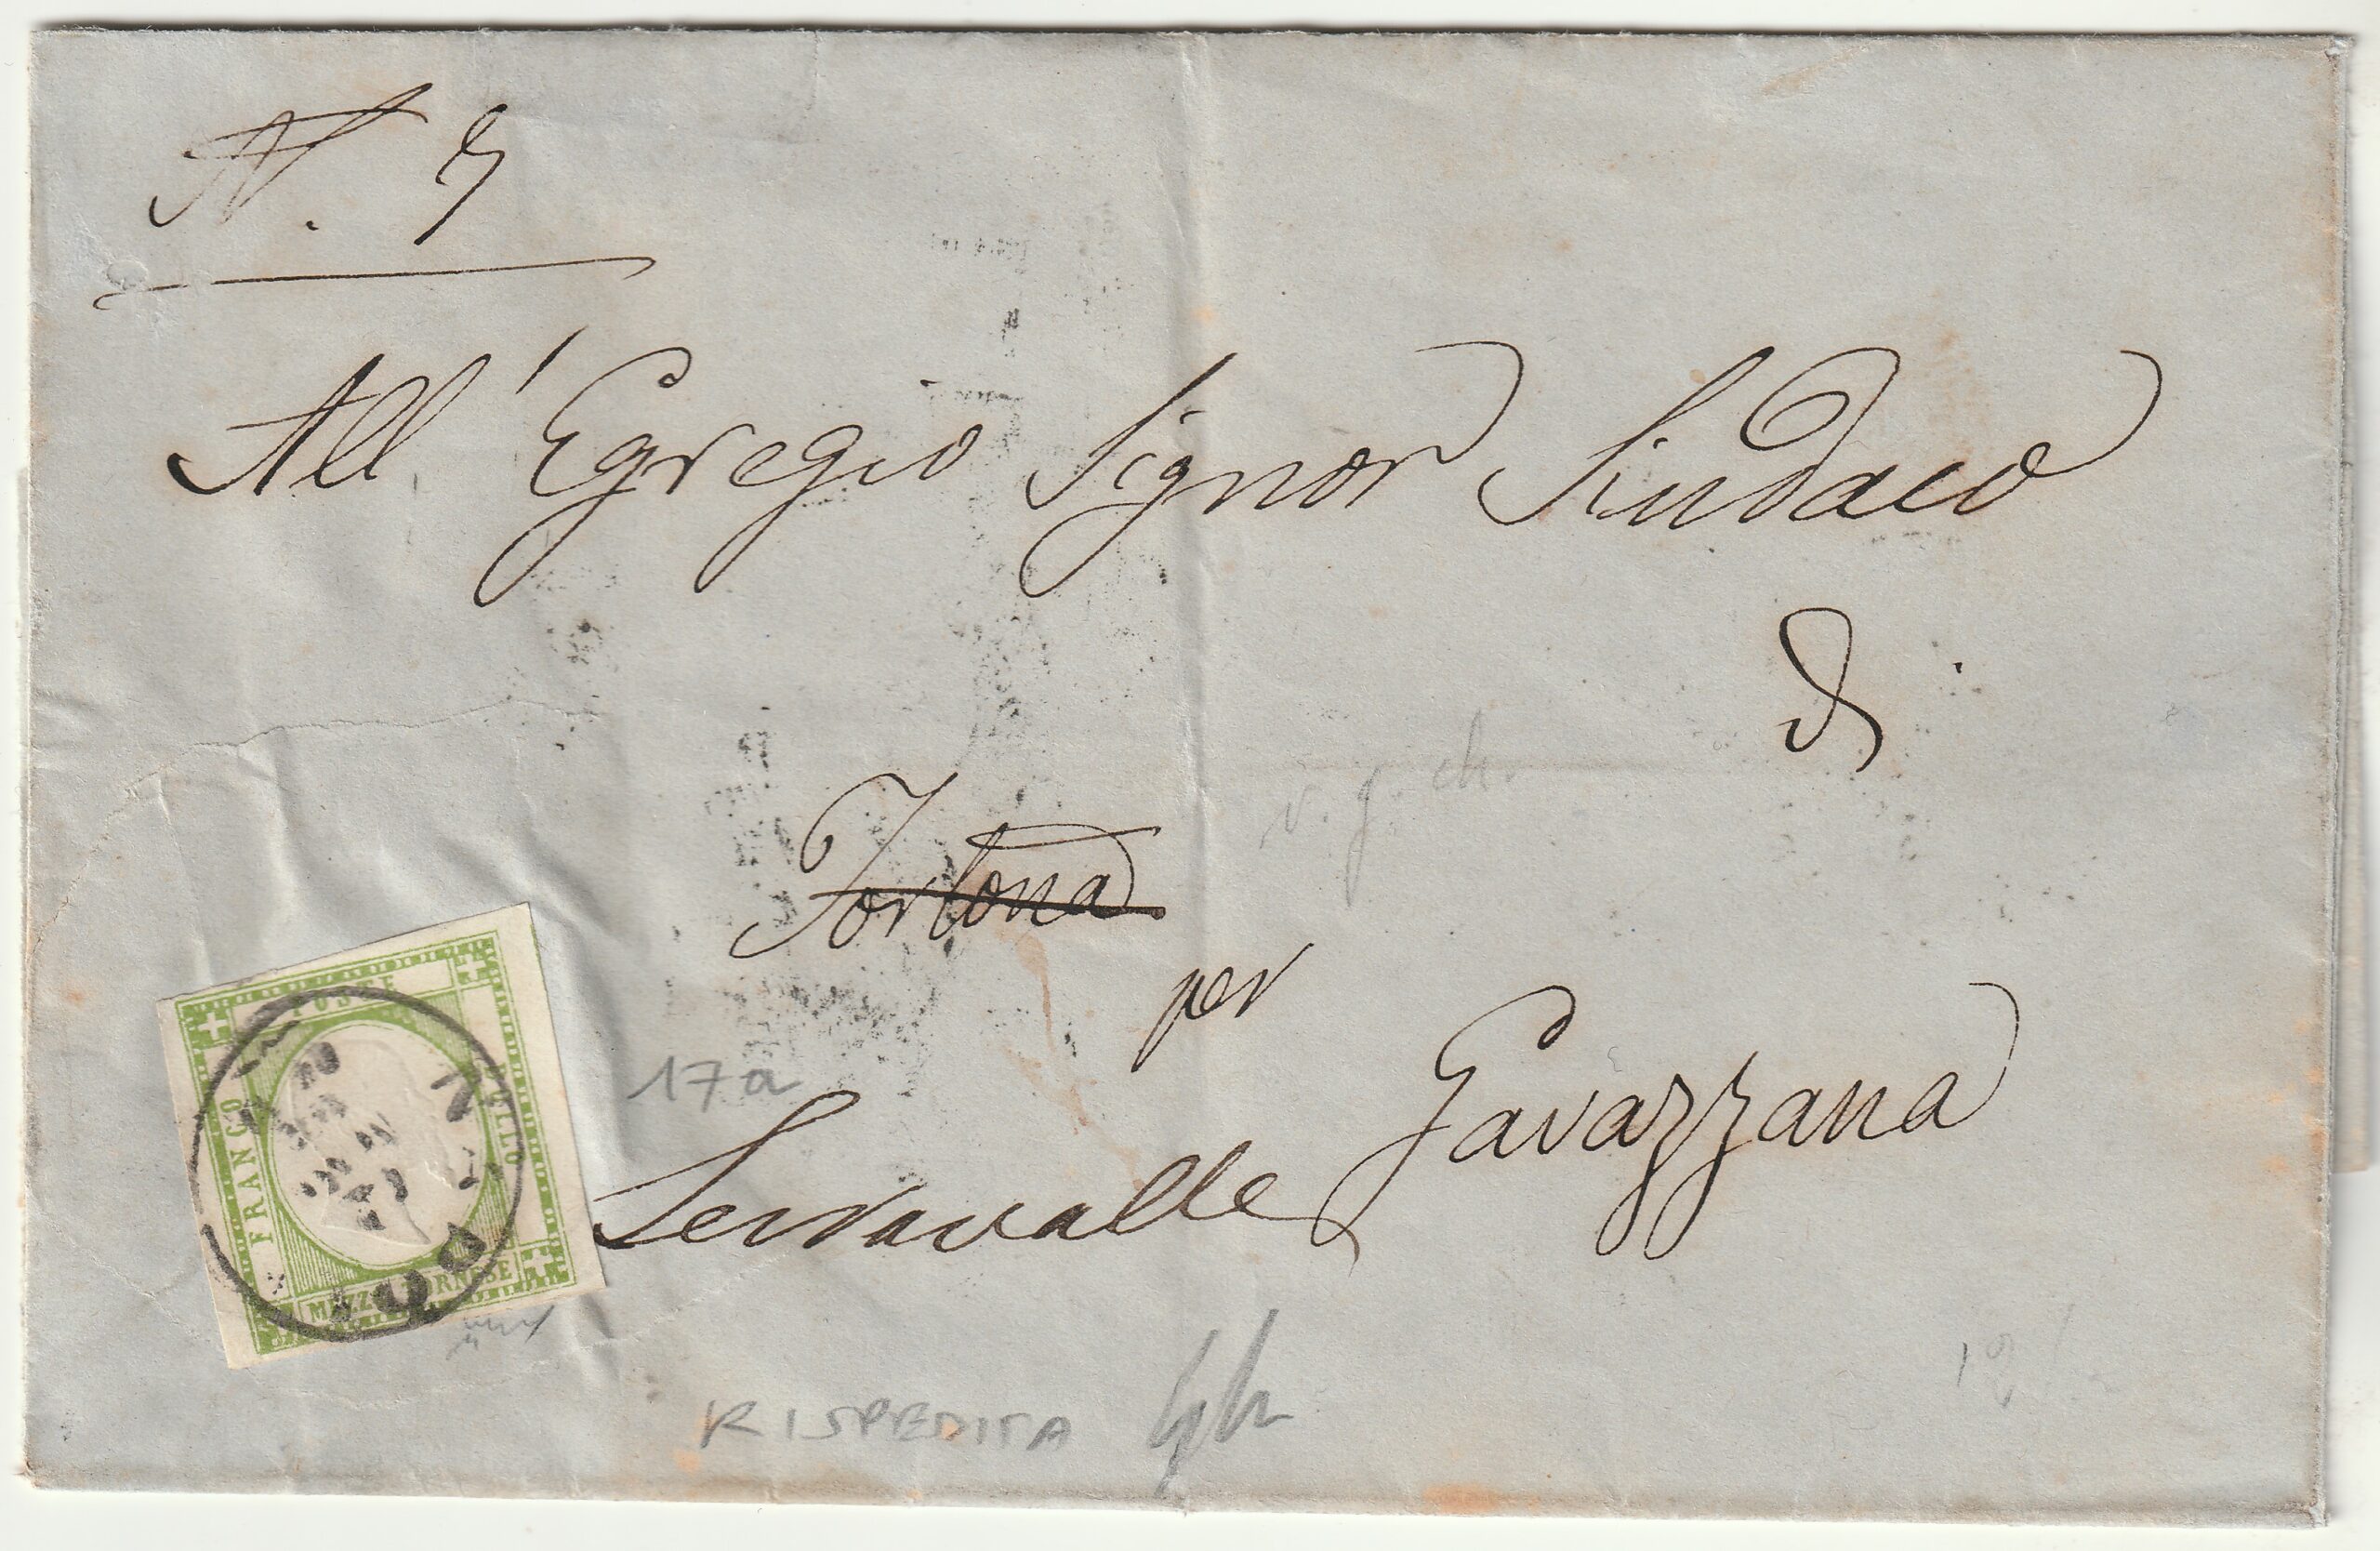 N. 7
All'Egregio Signor Sindaco
di
Tortona
per
Gavazzana
Serravalle
17 a
POSTE
FRANCO
BOLLO
MEZZO TORNESE
RISPEDITA